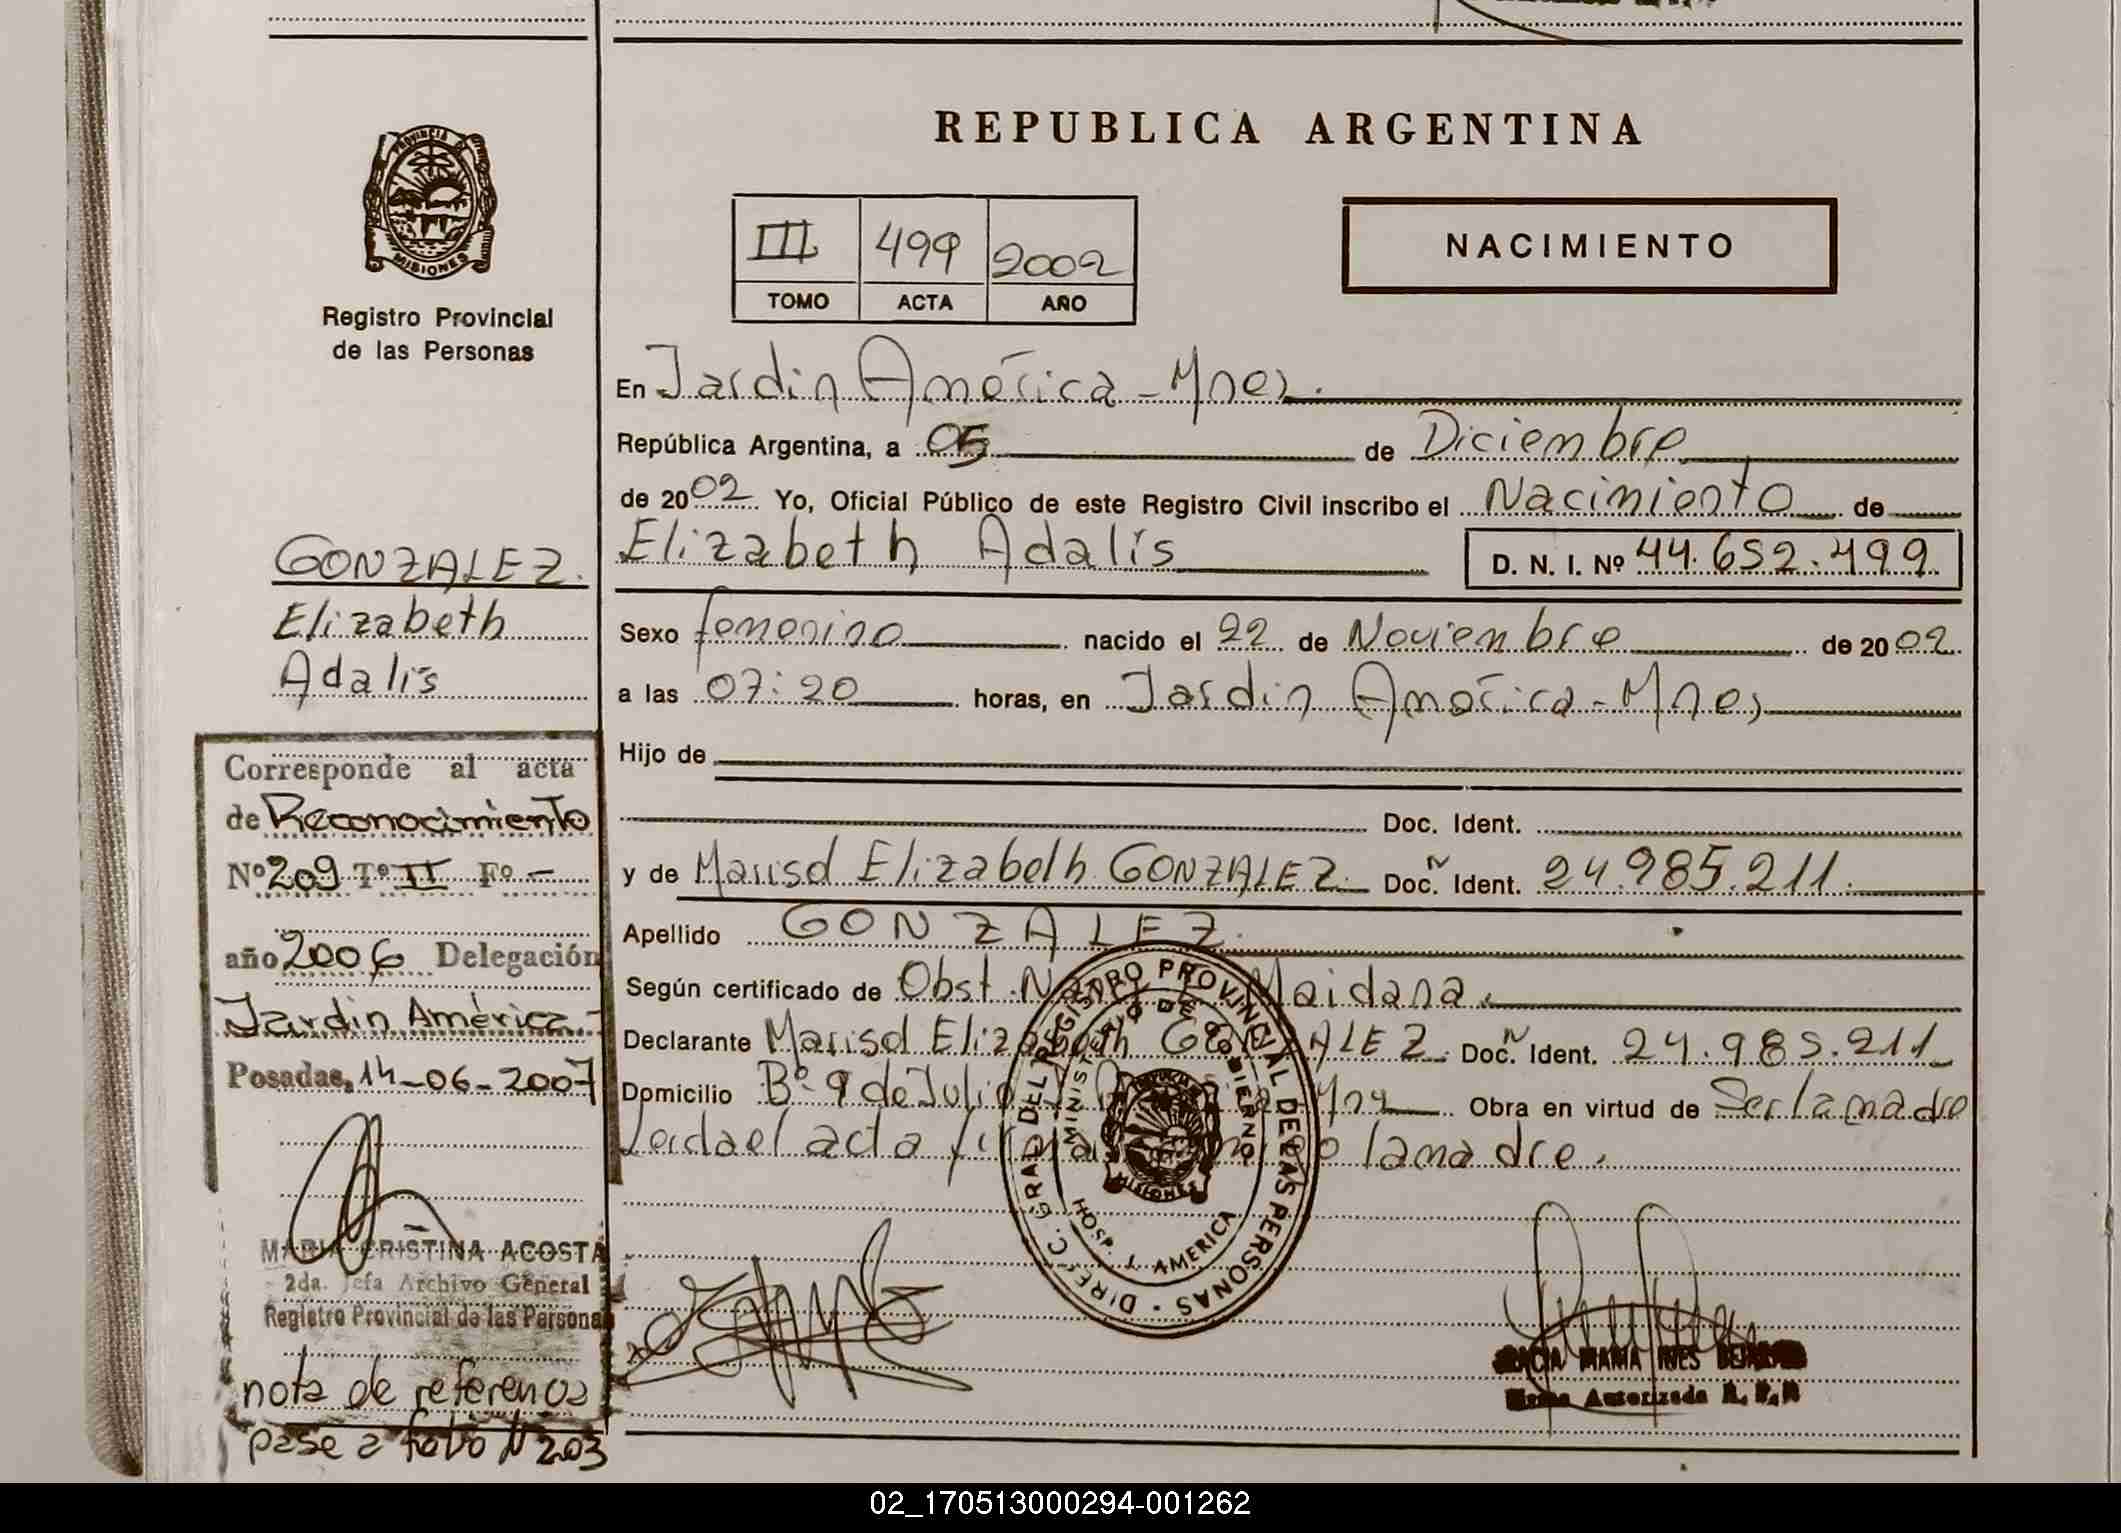 PROVINCIA DE
MISIONES
Registro Provincial
de las Personas
GONZALEZ.
Elizabeth
Adalis
Corresponde al acta
de Reconocimiento
Nº 209 Tº II Fº -
año 2006 Delegación
Jardin América -
Posadas, 14-06-2007
MARIA CRISTINA ACOSTA
2da. Jefa Archivo General
Registro Provincial de las Personas
nota de referencia
pase a folio Nº 203
REPUBLICA ARGENTINA
III 499 2002
TOMO ACTA AÑO
NACIMIENTO
En Jardin América - Mnes.
República Argentina, a 05 de Diciembre
de 2002 Yo, Oficial Público de este Registro Civil inscribo el Nacimiento de
Elizabeth Adalis
D. N. I. Nº 44.652.499
Sexo femenino nacido el 22 de Noviembre de 2002
a las 07:20 horas, en Jardin América - Mnes
Hijo de
Doc. Ident.
y de Marisol Elizabeth GONZALEZ. Doc. Ident. 24.985.211.
Apellido GONZALEZ.
Según certificado de Obst. Maidana.
Declarante Marisol Elizabeth GONZALEZ. Doc. Ident. 24.985.211
Domicilio Bº 9 de Julio Obra en virtud de Ser la madre
Leida el acta la madre.
DIREC. GRAD DEL REGISTRO PROVINCIAL DE LAS PERSONAS
MINISTERIO DE GOBIERNO
PROVINCIA DE
MISIONES
HOSP. J. AMERICA
MARIA INES
Firma Autorizada R. P. P.
02_170513000294-001262